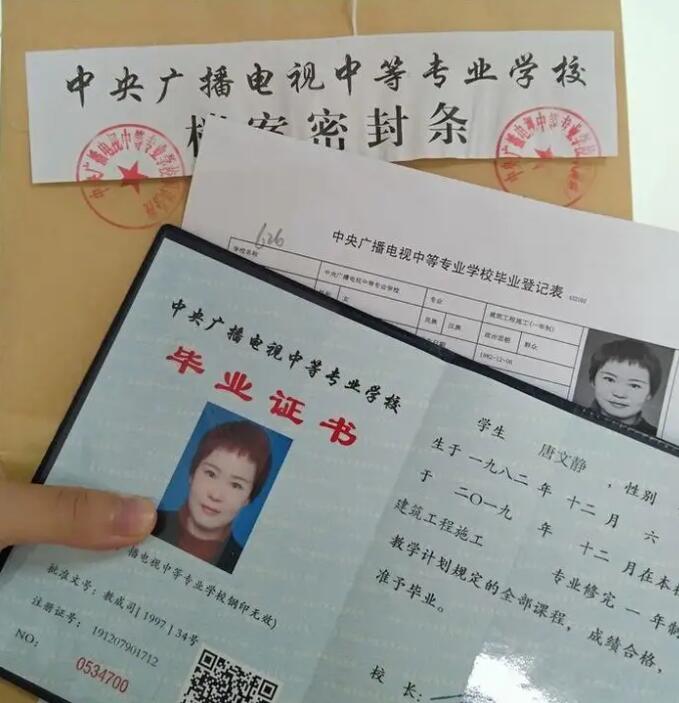 中央广播电视中等专业学校
档案密封条
中央广播电视中等专业学校
626
中央广播电视中等专业学校毕业登记表
学校名称
中央广播电视中等专业学校
专业
建筑工程施工(一年制)
女
民族
汉族
政治面貌
群众
1982-12-06
中央广播电视中等专业学校
毕业证书
广播电视中等专业学校钢印无效)
批准文号：教成司[1997]34号
注册证号：191207901712
NO：
0534700
学生 唐文静 ，性别
生于一九八二年 十二月 六
于 二〇一九 年 十二 月在本校
建筑工程施工 专业修完 一 年制
教学计划规定的全部课程，成绩合格，
准予毕业。
校 长：